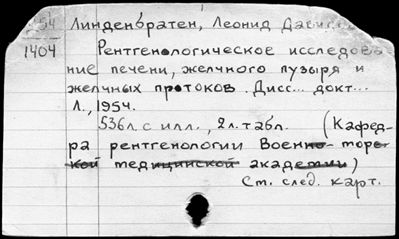 54 Линденбратен, Леонид Давид
1404 Рентгенологическое исследова-
ние печени, желчного пузыря и
желчных протоков. Дисс... докт...
Л., 1954.
536л. с илл., 2л. табл. (Кафед-
ра рентгенологии Военно-морс-
кой медицинской академии)
См. след. карт.